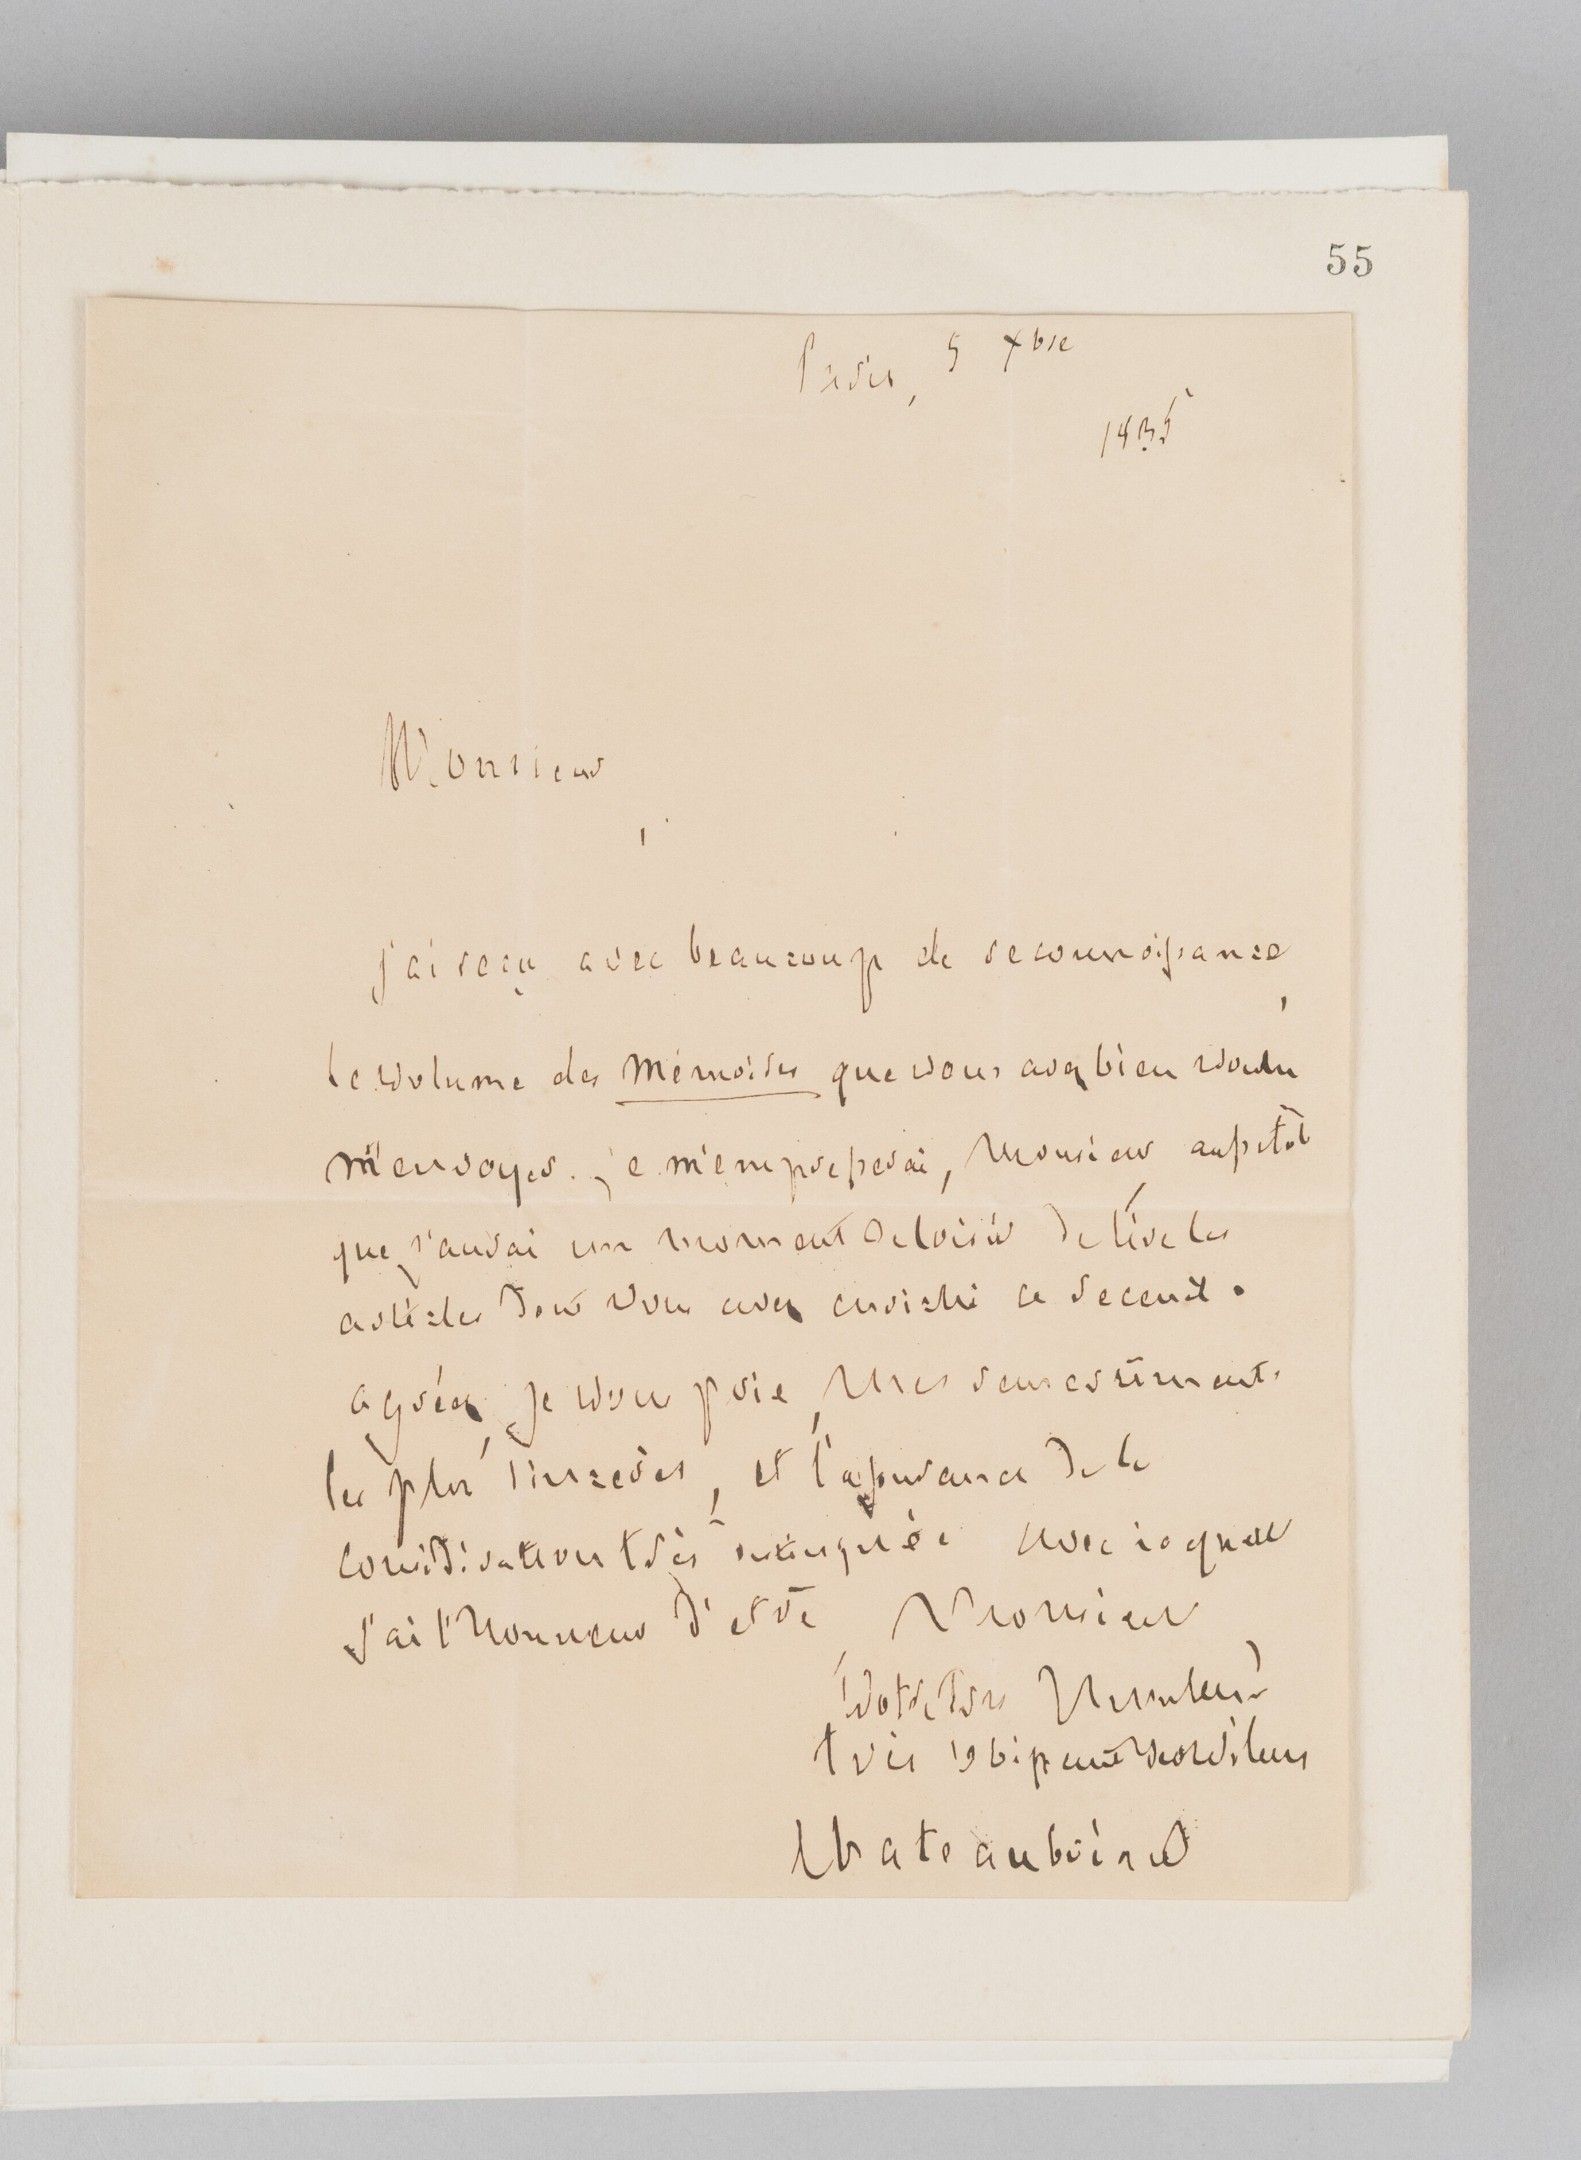 55
Paris, 5 Xbre
1835
Monsieur,
j'ai reçu avec beaucoup de reconnoissance,
le volume des Mémoires que vous avez bien voulu
m'envoyer. je m'empresserai, Monsieur, aussitôt
que j'aurai un moment de loisir de lire les
articles dont vous avez enrichi ce receuil.
agréez, je vous prie, mes remerciments
les plus sincères, et l'assurance de la
considération très distinguée avec laquelle
j'ai l'honneur d'etre, Monsieur
votre très humble et
très obéissant serviteur
Chateaubriand